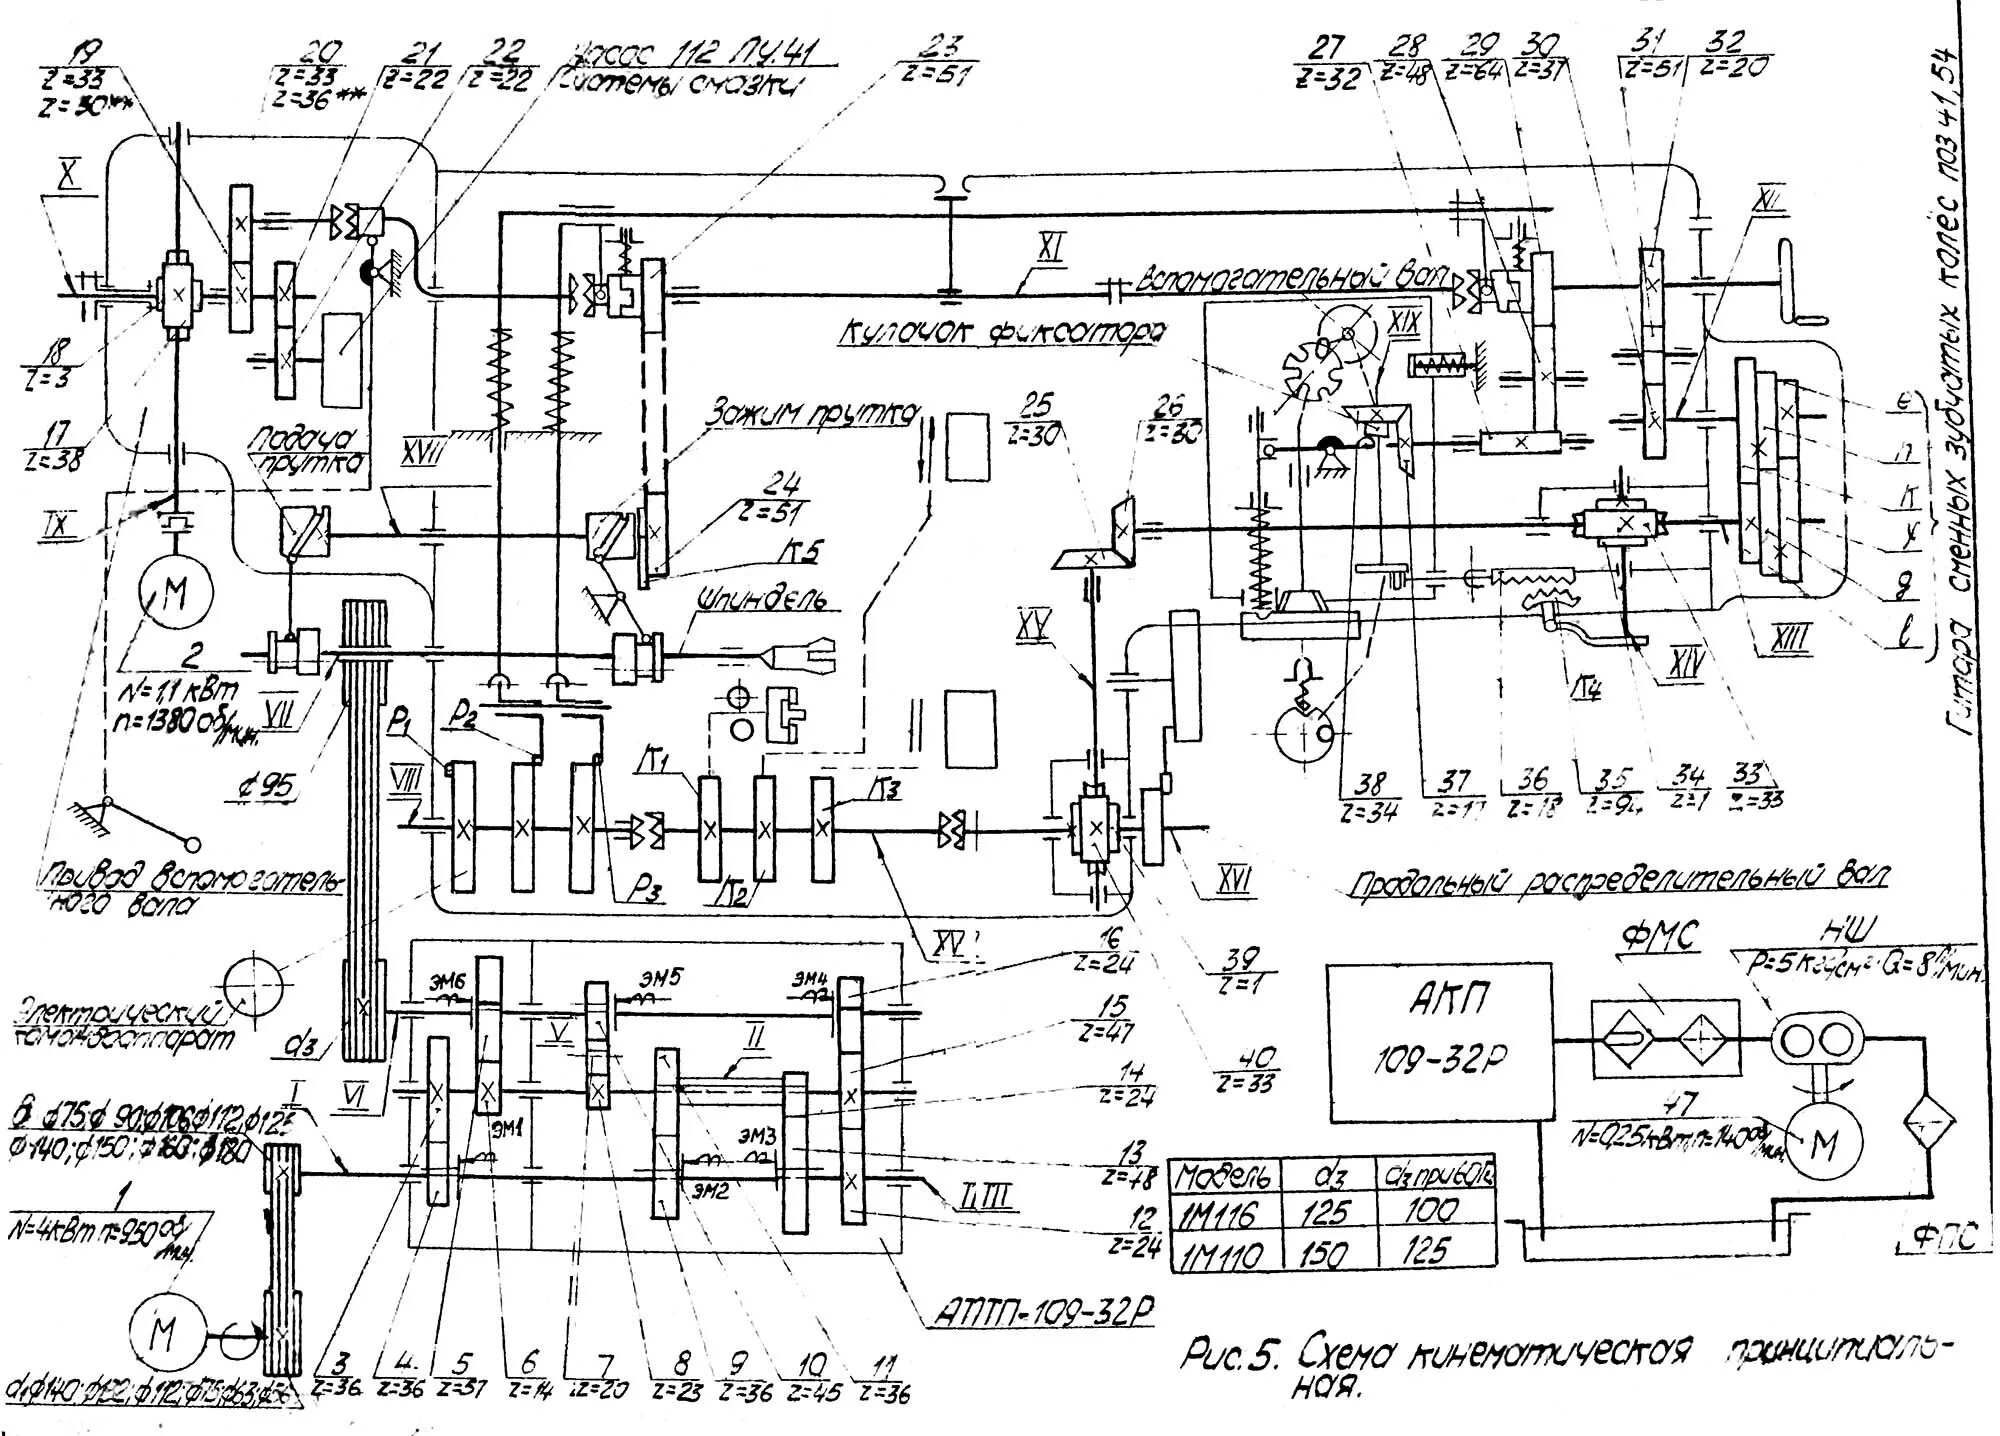 19
z=33
z=30**
20
z=33
z=36**
21
z=22
22
z=22
Насос 112 ЛУ.41
системы смазки
23
z=51
27
z=32
28
z=48
29
z=64
30
z=37
31
z=51
32
z=20
X
XI
XII
Вспомагательный вал
Кулачок фиксатора
XIX
18
z=3
17
z=38
Подача
прутка
XVII
Зажим прутка
25
z=30
26
z=30
24
z=51
К5
IX
М
Шпиндель
2
N=1,1 кВт
n=1380 об/мин.
VII
XV
XIV
XIII
К4
е
п
к
ж
д
в
Гитара сменных зубчатых колес поз 41,54
⌀95
P1
P2
К1
К3
VIII
38
z=34
37
z=17
36
z=18
35
z=94
34
z=1
33
z=33
Привод вспомогатель-
ного вала
P3
К2
XVI
Продольный распределительный вал
Электрический
командоаппарат
d3
ЭМ6
ЭМ5
ЭМ4
V
II
16
z=24
39
z=1
15
z=47
40
z=33
14
z=24
ФМС
НШ
P=5 кг/см² Q=8 л/мин.
АКП
109-32Р
47
N=0,25кВт
М
I
VI
ЭМ1
ЭМ3
ЭМ2
⌀75; ⌀90; ⌀106; ⌀112; ⌀125
⌀140; ⌀150; ⌀160; ⌀180
13
z=48
12
z=24
I, III
1
N=4кВт n=950 об/мин.
Модель d3 d3 привода
1М116 125 100
1М110 150 125
ФПС
М
АПТП-109-32Р
3
z=36
4
z=36
5
z=57
6
z=14
7
z=20
8
z=23
9
z=36
10
z=45
11
z=36
Рис. 5. Схема кинематическая принципиаль-
ная.